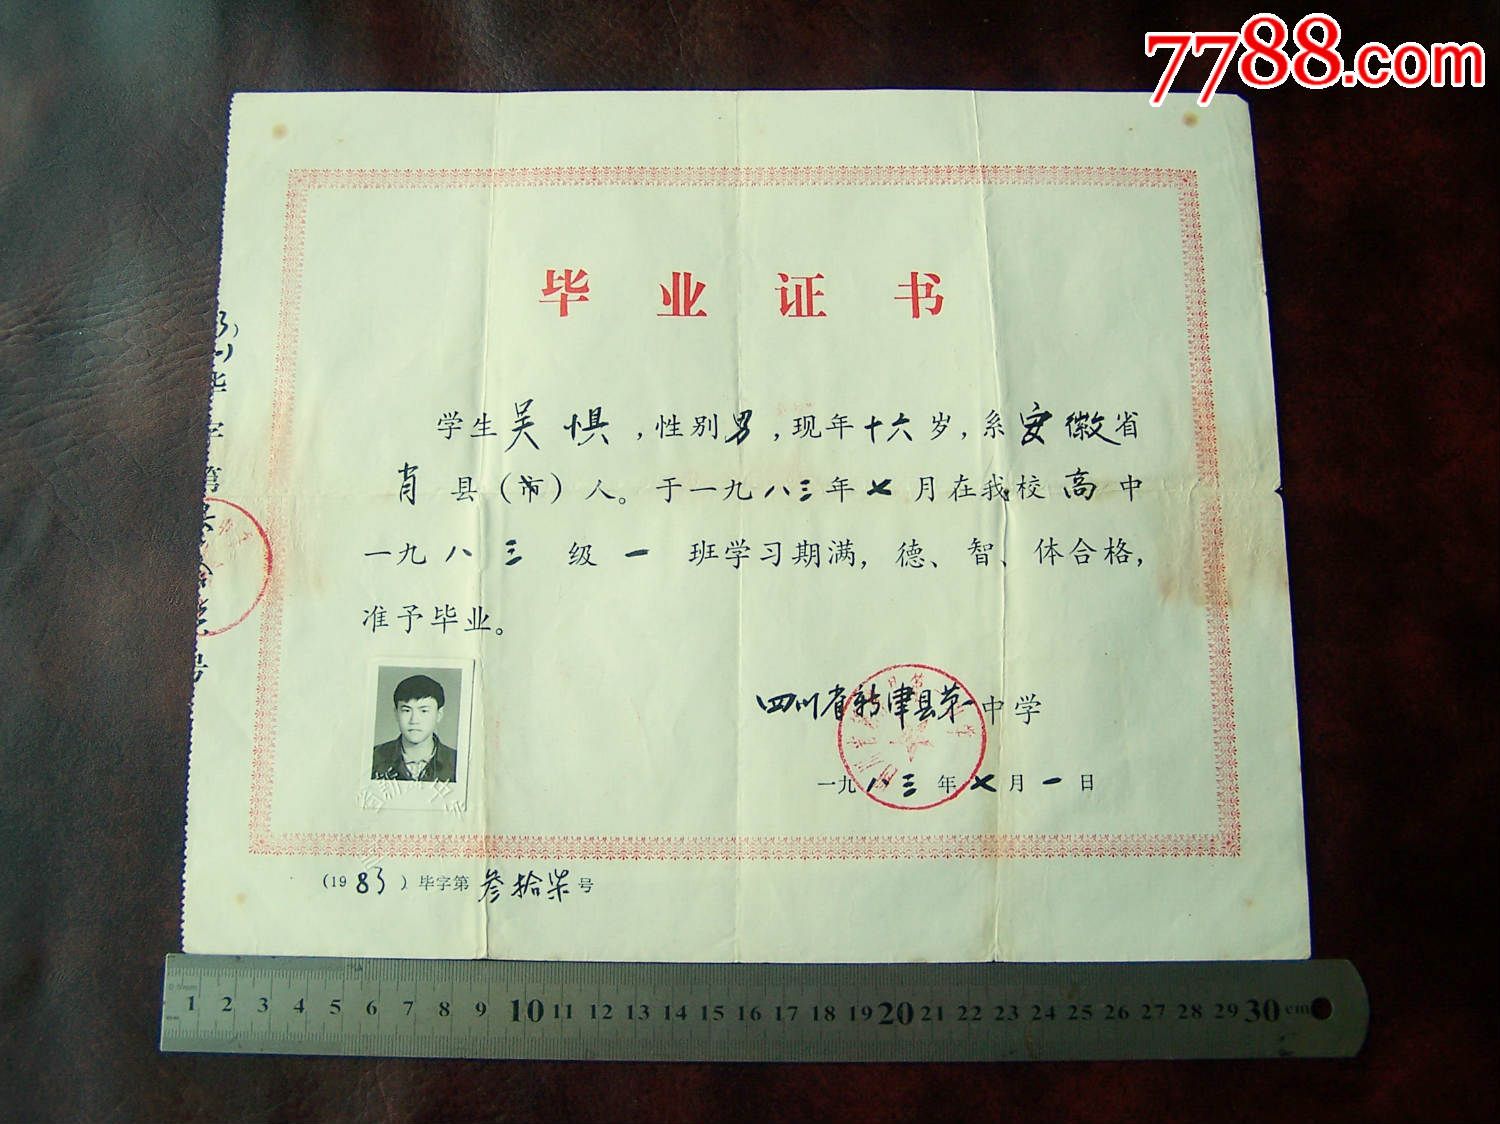 7788.com
毕业证书
学生吴惧，性别男，现年十六岁，系安徽省
肖县（市）人。于一九八三年七月在我校高中
一九八三级一班学习期满，德、智、体合格，
准予毕业。
四川省新津县第一中学
一九八三年七月一日
（1983）毕字第叁拾柒号
1 2 3 4 5 6 7 8 9 10 11 12 13 14 15 16 17 18 19 20 21 22 23 24 25 26 27 28 29 30 cm